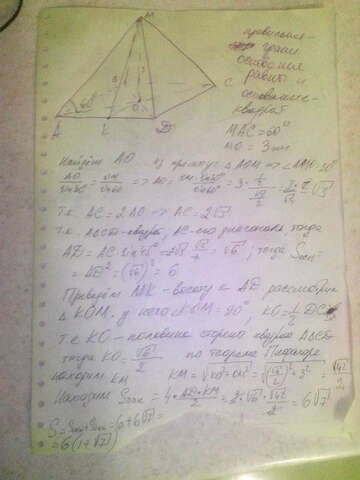 M
A
K
D
C
O
60°
правильная
грани
основания
равны и
основание-
квадрат
MAC=60°
MO = 3 см
Найдём AO из треуг. △AOM => ∠AMO=30°
AO/sin30° = OM/sin60 => AO = OM·sin30°/sin60° = 3· =√3
Т.к. AC=2AO => AC=2√3.
Т.к. ABCD-квадрат, AC-его диагональ тогда
AD=AC·sin45°=2√3·√2/2=√6; тогда Sосн=
=AD²=(√6)²=6
Проведём MK-высоту к AD рассмотрим
△KOM, у него ∠KOM=90°, KO=1/2 DC
Т.к KO-половина стороны квадрата ABCD
тогда KO=√6/2 по теореме Пифагора
находим KM KM=√KO²+OM²=√(√6/2)²+3²=√42/2
Находим Sбок=4·AD·KM/2=2·√6·√42/2=6√7
S=Sосн+Sбок=6+6√7=
=6(1+√7)